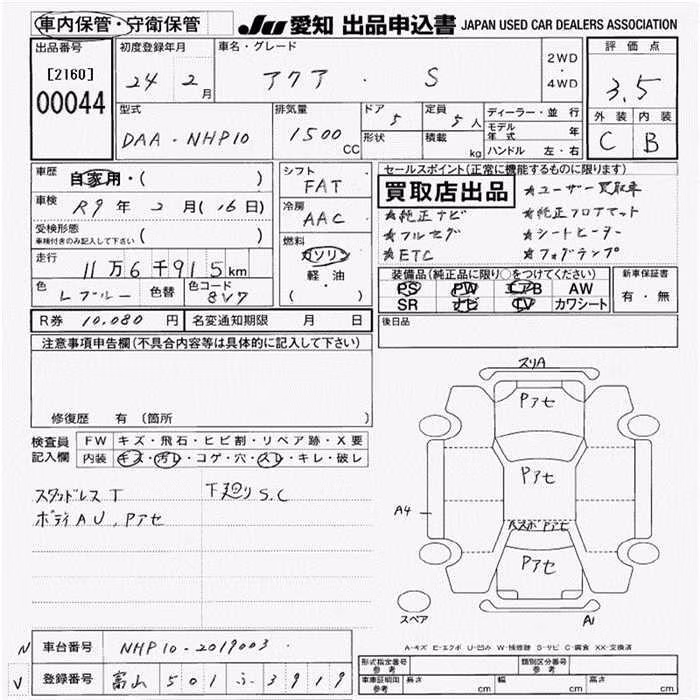 車内保管・守衛保管
JU 愛知 出品申込書 JAPAN USED CAR DEALERS ASSOCIATION
出品番号
[2160]
00044
初度登録年月
24 2月
車名・グレード
アクア . S
2WD
・
4WD
評価点
3.5
外装 内装
C B
型式
DAA - NHP10
排気量
1500 CC
ドア 5
形状
定員 5人
積載 kg
ディーラー・並行
モデル年式 年
ハンドル 左・右
車歴
自家用・( )
車検
R9年 2月(16日)
受検形態
車検付きのみ記入して下さい ( )
走行
11万6千915km
色 Lブルー 色替 色コード 8V7
シフト
FAT
冷房
AAC
燃料
ガソリン
軽・油
( ・ )
セールスポイント(正常に機能するものに限ります)
買取店出品
★ユーザー買取車
★純正ナビ ★純正フロアマット
★フルセグ ★シートヒーター
★ETC ★フォグランプ
装備品(純正品に限り○をつけてください)
PS PW エアB AW
SR ナビ TV カワシート
新車保証書
有・無
後日品
R券 10,080 円 名変通知期限 月 日
注意事項申告欄(不具合内容等は具体的に記入して下さい)
修復歴 有 (箇所 )
検査員記入欄
FW キズ・飛石・ヒビ割・リペア跡・X要
内装 キズ・汚レ・コゲ・穴・スレ・キレ・破レ
スタッドレスT 下廻りS.C
ボディAU、Pアセ
スリA
Pアセ
Pアセ
A4
Pアセ
Pアセ
A1
スペア
A-キズ E-エクボ U-凹み W-補修跡 S-サビ C-腐食 XX-交換済
N 車台番号 NHP10-2019003
V 登録番号 富山 501 ふ 3919
形式指定番号 参考
類別区分番号 参考
車庫証明用 参考
長さ cm 幅 cm 高さ cm